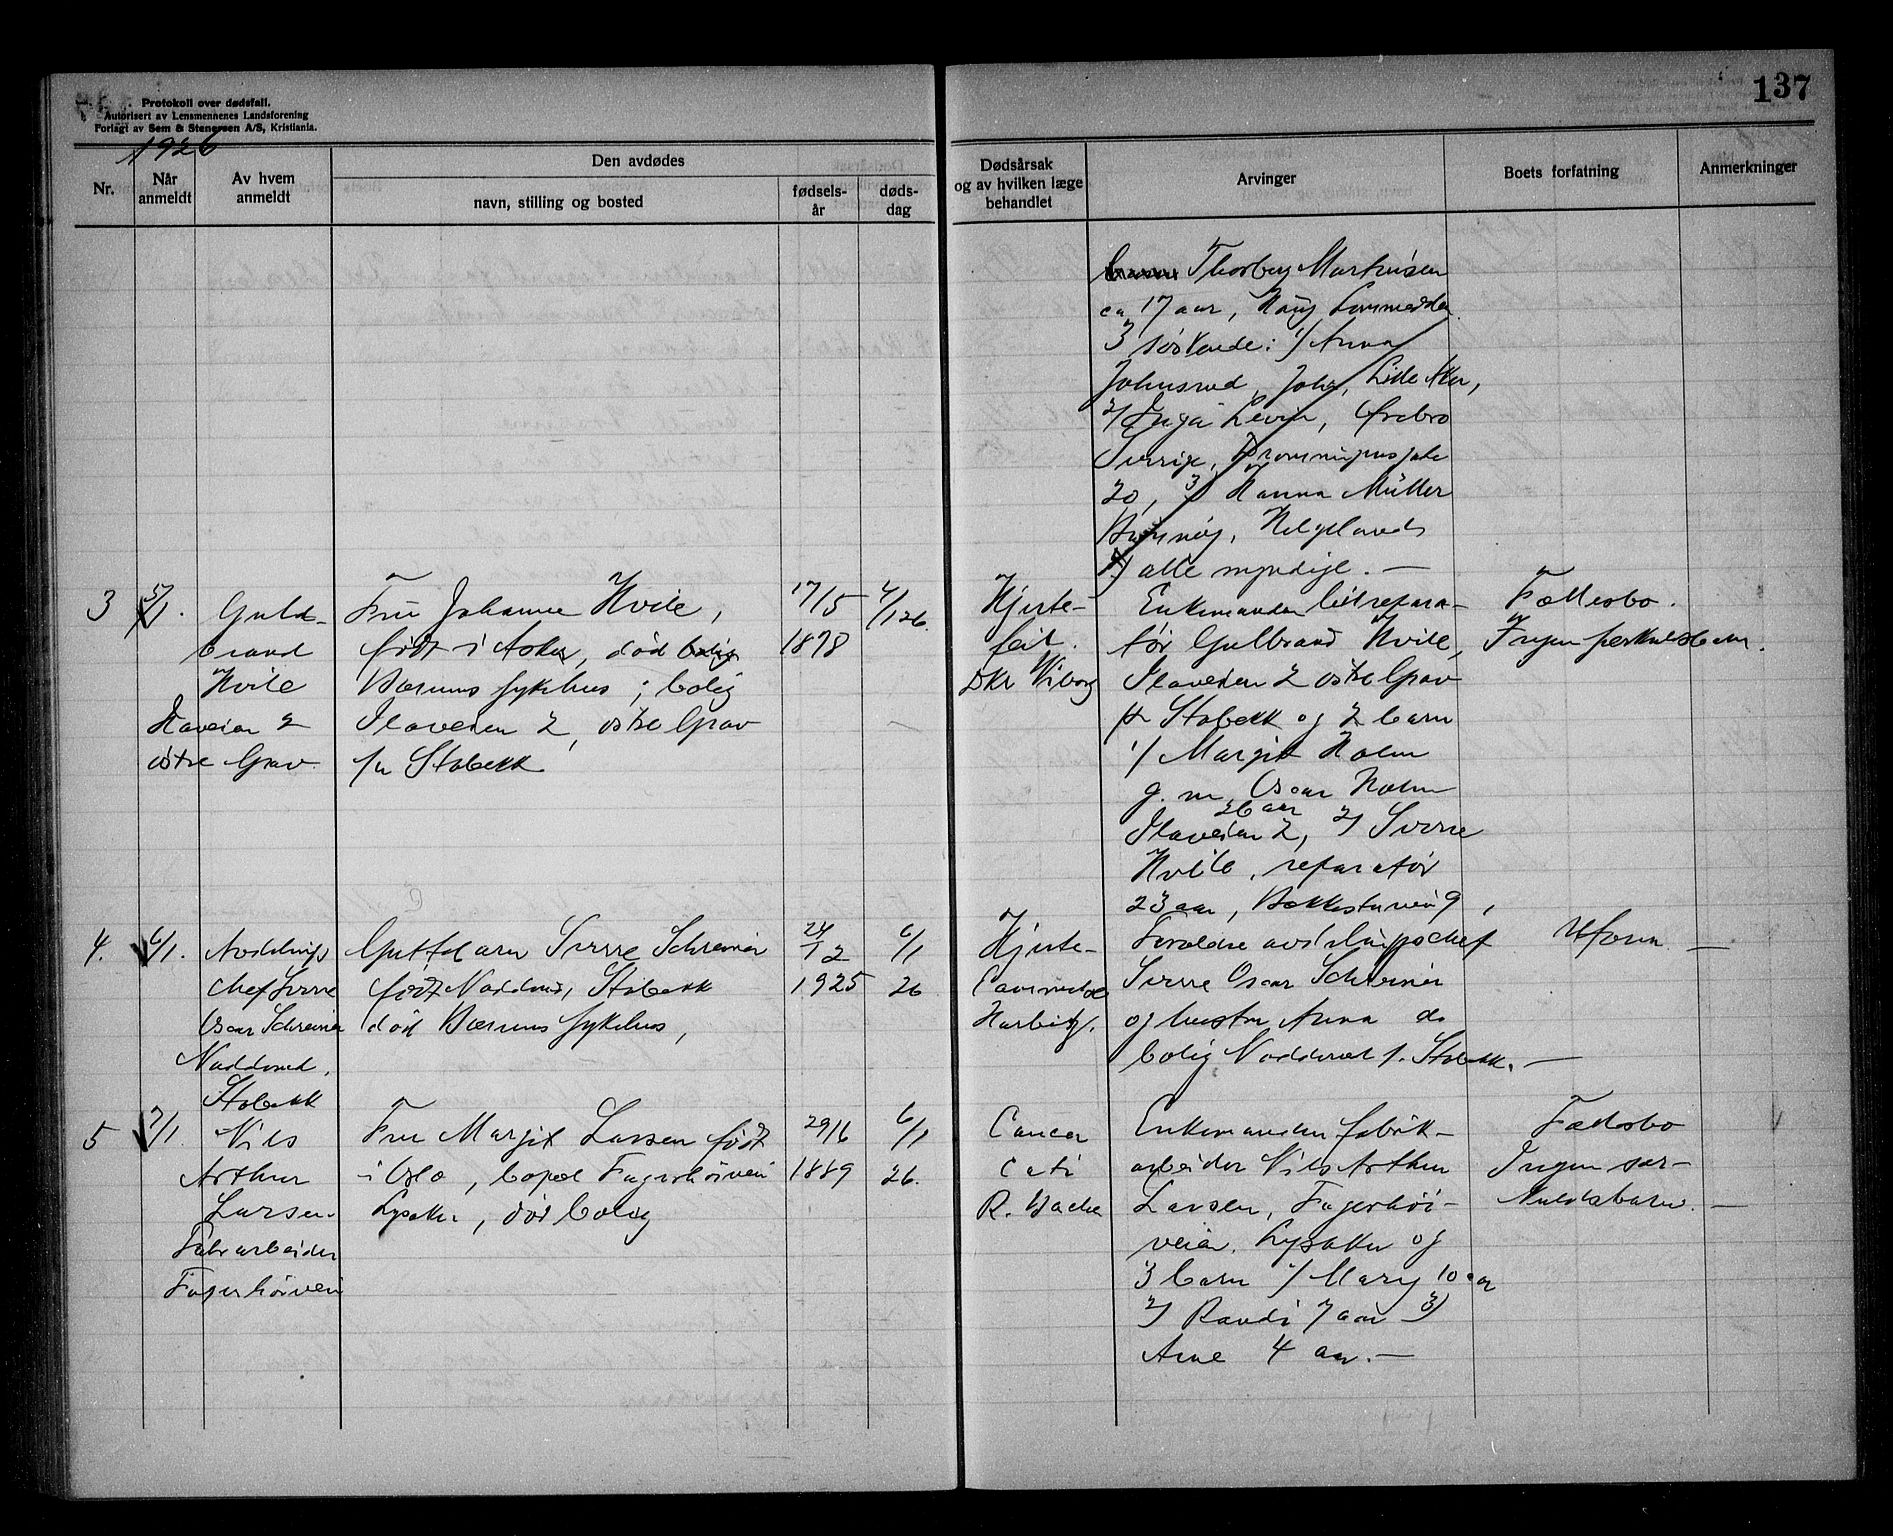 137
Protokoll over dødsfall.
Autorisert av Lensmennenes Landsforening
Forlagt av Sem & Stenersen A/S, Kristiania.
1926
Nr.
Når anmeldt
Av hvem anmeldt
Den avdødes
navn, stilling og bosted
fødsels-år
døds-dag
Dødsårsak
og av hvilken læge
behandlet
Arvinger
Boets forfatning
Anmerkninger
Thorberg Martinsen
ca 17 aar, Haug Lommedalen.
3 søskende: 1/ Anna
Johnsrud, Lille Aker,
2/ Inga Levin, Ørebro
Sverige, Dronningensgate
20, 3) Hanna Müller
Helgeland
alle myndige. —
3
5/1.
Guld-
brand
Hvile
Ilaveien 2
østre Grav.
Fru Johanne Hvile,
født i Asker, død bolig
Bærums sykehus; bolig
Ilaveien 2, østre Grav
pr Stabekk
17/5
1878
4/1 26.
Hjerte-
feil.
Dkr Viborg
Enkemanden bilrepara-
tør Gulbrand Hvile,
Ilaveien 2 østre Grav
pr Stabekk og 2 barn
1/ Margit Holm
g. m. Oscar Holm
26 aar
Ilaveien 2, 2/ Sverre
Hvile, reparatør
23 aar, Bekkestuvein 9,
Fællesbo.
Ingen særkuldsbarn.
4.
6/1.
Avdelings
chef Sverre
Oscar Schreiner
Nadderud,
Stabekk
Guttebarn Sverre Schreiner
født Nadderud, Stabekk
død Bærums sykehus,
24/12
1925
6/1
26
Hjerte-
Harbitz.
Forældre avdelingschef
Sverre Oscar Schreiner
og hustru Anna do
bolig Nadderud p. Stabekk. —
Uform. —
5
7/1.
Nils
Arthur
Larsen.
Fabr arbeider
Fagerhøiveien
Fru Margit Larsen født
i Oslo, bopæl Fagerhøiveien
Lysaker, død bolig
29/6
1889
6/1
26.
Cancer
R. Backer
Enkemanden fabrik-
arbeider Nils Arthur
Larsen, Fagerhøi-
veien. Lysaker og
3 barn 1/ Mary 10 aar
2/ Randi 7 aar 3)
Arne 4 aar. —
Fællesbo
Ingen sær-
kuldsbarn. —